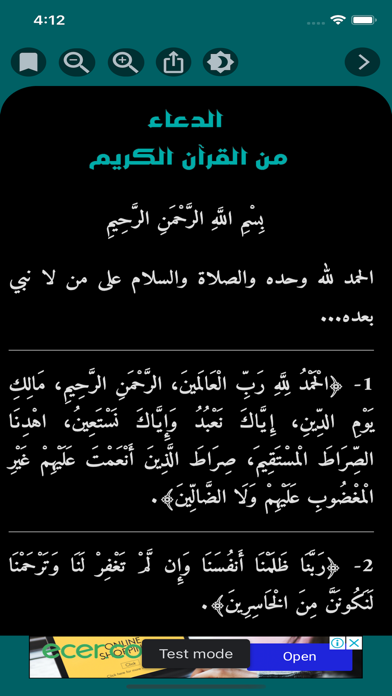 4:12
الدعاء
من القرآن الكريم
بِسْمِ اللَّهِ الرَّحْمَنِ الرَّحِيمِ
الحمد لله وحده والصلاة والسلام على من لا نبي
بعده...
1- ﴿الْحَمْدُ لِلَّهِ رَبِّ الْعَالَمِينَ، الرَّحْمَنِ الرَّحِيمِ، مَالِكِ
يَوْمِ الدِّينِ، إِيَّاكَ نَعْبُدُ وَإِيَّاكَ نَسْتَعِينُ، اهْدِنَا
الصِّرَاطَ الْمُسْتَقِيمَ، صِرَاطَ الَّذِينَ أَنْعَمْتَ عَلَيْهِمْ غَيْرِ
الْمَغْضُوبِ عَلَيْهِمْ وَلَا الضَّالِّينَ﴾.
2- ﴿رَبَّنَا ظَلَمْنَا أَنْفُسَنَا وَإِن لَّمْ تَغْفِرْ لَنَا وَتَرْحَمْنَا
لَنَكُونَنَّ مِنَ الْخَاسِرِينَ﴾.
ONLINE
Test mode
Open